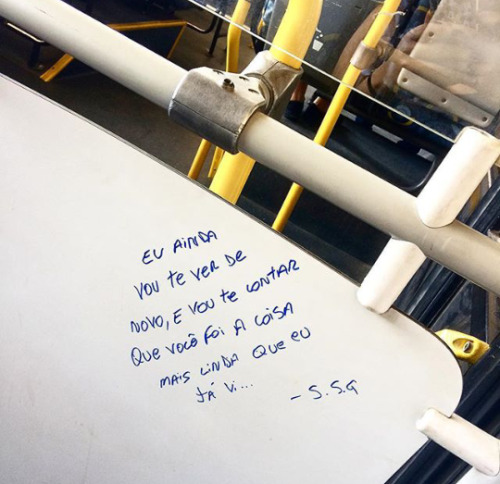 EU AINDA
VOU TE VER DE
NOVO, E VOU TE CONTAR
QUE VOCÊ FOI A COISA
MAIS LINDA QUE EU
JÁ VI...
- S.S.G